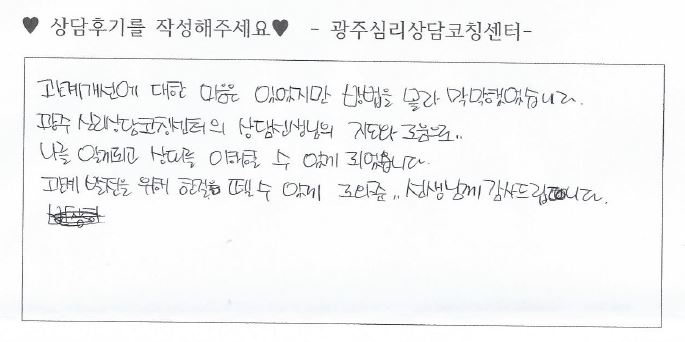 ♥ 상담후기를 작성해주세요♥ - 광주심리상담코칭센터-
관계개선에 대한 마음은 있었지만 방법을 몰라 막막했었습니다.
광주 심리상담코칭센터의 상담선생님의 지도와 도움으로..
나를 알게되고 상대를 이해할 수 있게 되었습니다.
관계 발전을 위해 한걸음 뗄 수 있게 도와준.. 선생님께 감사드립니다.